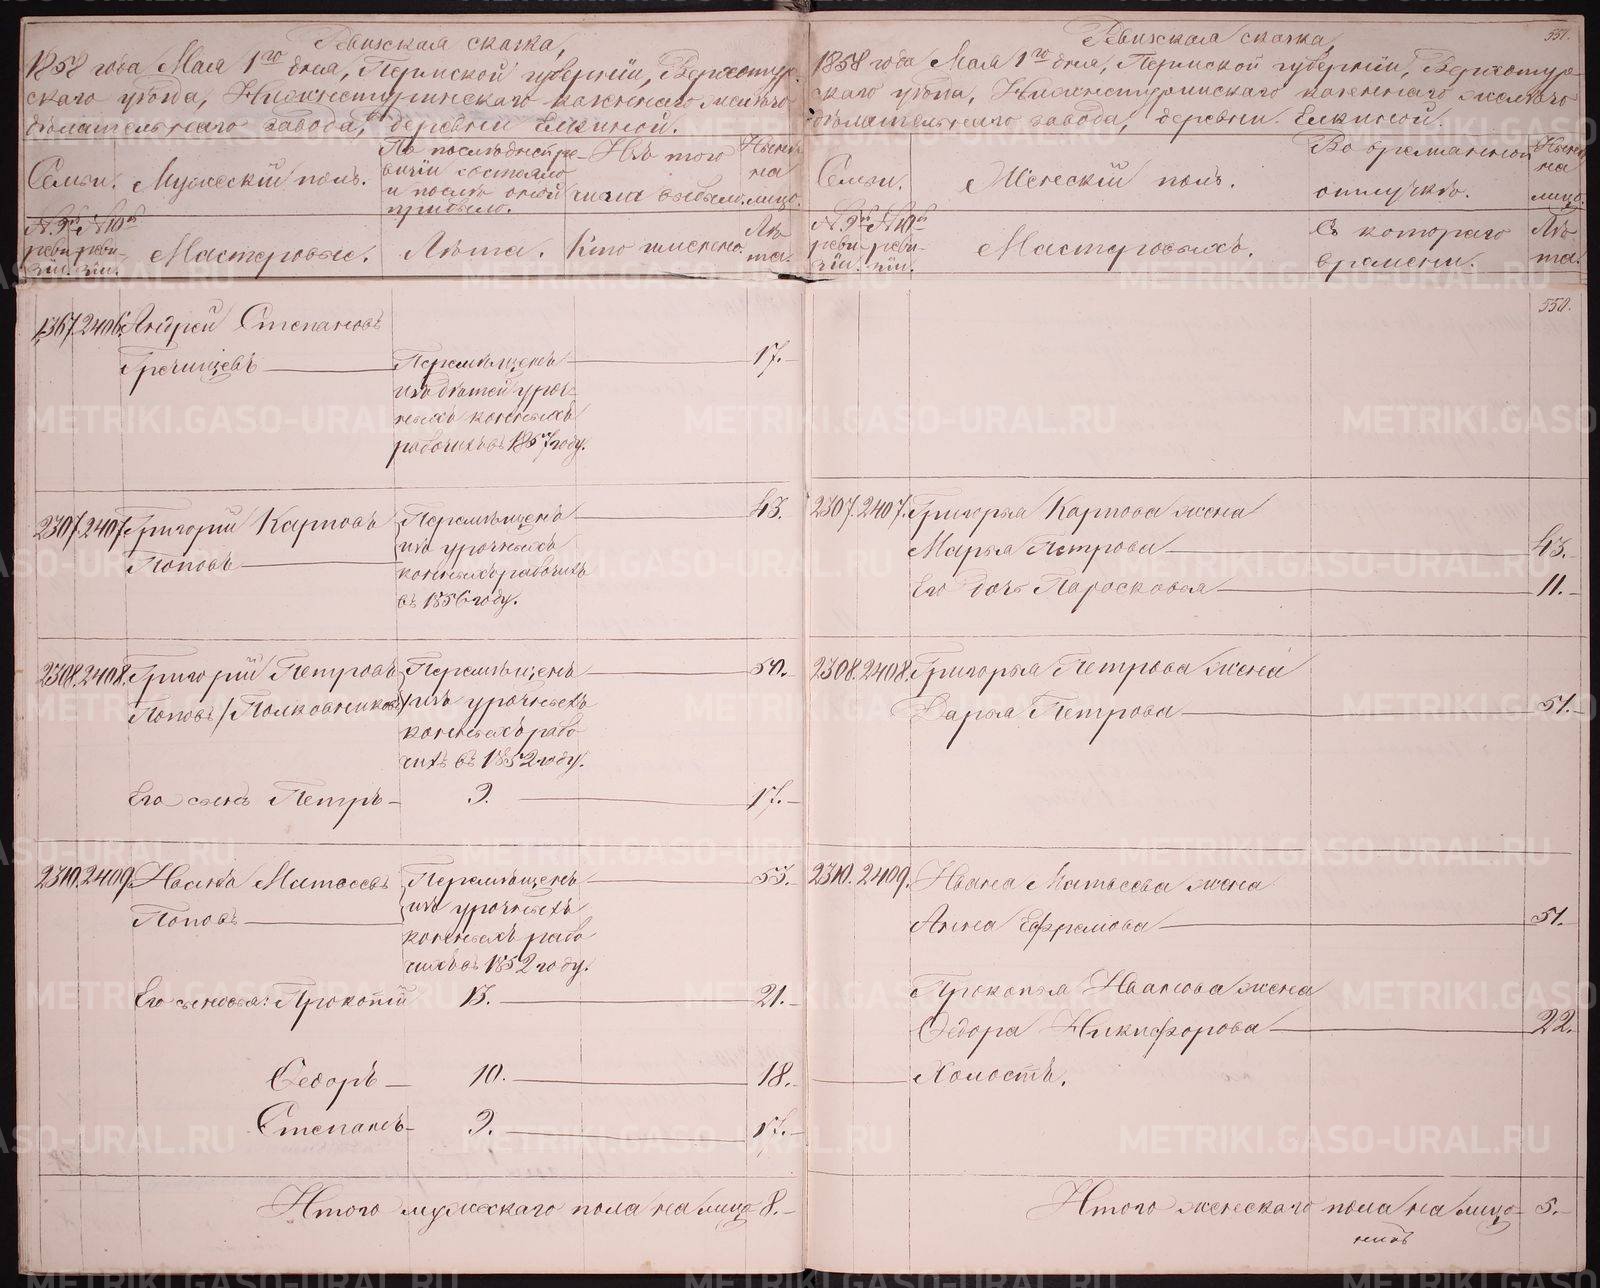 Ревижская сказка,
1858 года Мая 1го дня, Пермской губернiи, Верхотур-
скаго уѣзда, Нижнетуринскаго казеннаго желѣзо
дѣлательнаго завода, деревни Елкиной.
Семьи. Мужескiй полъ.
По послѣдней ре-
визiи состояло
и послѣ оной
прибыло.
Изъ того
числа выбыло.
Нынѣ
на
лицо.
№ 9й
реви-
зiи.
№ 10й
реви-
зiи.
Мастеровые.
Лѣта.
Кто именно.
Лѣ
та.
1367. 2406. Андрей Степановъ
Гречищевъ
Перемѣщенъ
изъ дѣтей уроч-
ныхъ конныхъ
рабочихъ въ 1857 году.
17.
2307. 2407. Григорiй Карповъ
Поповъ
Перемѣщенъ
изъ урочныхъ
конныхъ рабочихъ
въ 1856 году.
43.
2308. 2408. Григорiй Петровъ
Поповъ /Полковниковъ/
Перемѣщенъ
изъ урочныхъ
конныхъ рабо
чихъ въ 1852 году.
50.
Его сынъ Петръ 9. 17.
2310. 2409. Иванъ Матвеевъ
Поповъ
Перемѣщенъ
изъ урочныхъ
конныхъ рабо
чихъ въ 1852 году.
53.
Его сыновья: Прокопiй 13. 21.
Ѳедоръ 10. 18.
Степанъ 9. 17.
Итого мужескаго пола на лицо 8.
551.
Ревижская сказка,
1858 года Мая 1го дня, Пермской губернiи, Верхотур-
скаго уѣзда, Нижнетуринскаго казеннаго желѣзо
дѣлательнаго завода, деревни Елкиной.
Семьи. Женскiй полъ.
Во временной
отлучкѣ.
Нынѣ
на
лицо.
№ 9й
реви-
зiи.
№ 10й
реви-
зiи.
Мастеровыхъ.
Съ котораго
времени.
Лѣ
та.
550.
2307. 2407. Григорья Карпова жена
Марья Петрова 43.
Его дочь Парасковья 11.
2308. 2408. Григорья Петрова жена
Дарья Петрова 51.
2310. 2409. Ивана Матвеева жена
Анна Ефремова 51.
Прокопья Иванова жена
Ѳедора Никифорова 22.
Холостъ.
Итого женскаго пола на лицо 5.
METRIKI.GASO-URAL.RU